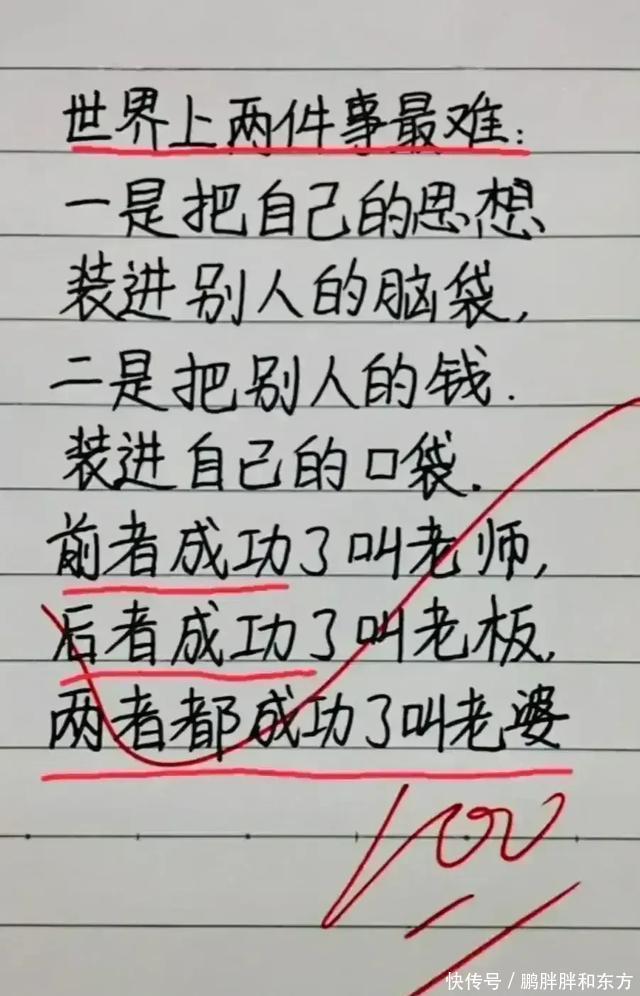 世界上两件事最难:
一是把自己的思想
装进别人的脑袋,
二是把别人的钱.
装进自己的口袋.
前者成功了叫老师,
后者成功了叫老板,
两者都成功了叫老婆
100
快传号/鹏胖胖和东方